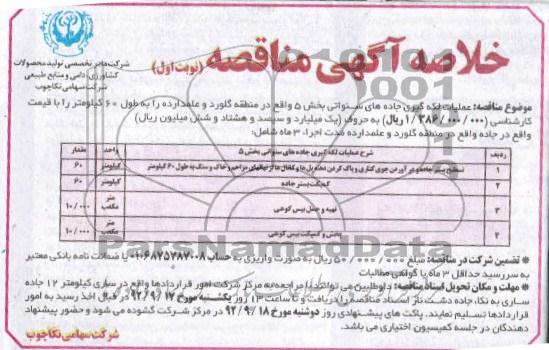 خلاصه آگهی مناقصه (نوبت اول)
شرکت مادر تخصصی تولید محصولات
کشاورزی، دامی و منابع طبیعی
شرکت سهامی نکاچوب
موضوع مناقصه: عملیات لکه گیری جاده های سنواتی بخش ۵ واقع در منطقه گلورد و علمدارده را به طول ۶۰ کیلومتر را با قیمت
کارشناسی (۱/۳۸۶/۰۰۰/۰۰۰ ریال) به حروف (یک میلیارد و سیصد و هشتاد و شش میلیون ریال)
واقع در جاده واقع در منطقه گلورد و علمدارده مدت اجراء ۳ ماه شامل:
ردیف شرح عملیات لکه گیری جاده های سنواتی بخش ۵ واحد مقدار
۱ تسطیح بستر جاده و در آوردن جوی کناری و پاک کردن دهنه پل ها و کانال ها از نهالهای مزاحم و خاک و سنگ به طول ۶۰ کیلومتر کیلومتر ۶۰
۲ کمپکت بستر جاده کیلومتر ۶۰
۳ تهیه و حمل بیس کوهی متر مکعب ۱۰/۰۰۰
۴ پخش و کمپکت بیس کوهی متر مکعب ۱۰/۰۰۰
* تضمین شرکت در مناقصه: مبلغ ۵۰/۰۰۰/۰۰۰ ریال به صورت واریزی به حساب ۰۱۰۶۸۷۵۲۸۷۰۰۸ یا ضمانت نامه بانکی معتبر
به سررسید حداقل ۳ ماه یا گواهی مطالبات
* مهلت و مکان تحویل اسناد مناقصه: داوطلبین می توانند با مراجعه به مرکز شرکت امور قراردادها واقع در ساری کیلومتر ۱۲ جاده
ساری به نکا، جاده دشت ناز اسناد مناقصه را دریافت و تا ساعت ۱۳ روز یکشنبه مورخ ۹۲/۹/۱۷ در قبال اخذ رسید به امور
قراردادها تسلیم نمایند. پاکت های پیشنهادی روز دوشنبه مورخ ۹۲/۹/۱۸ در مرکز شرکت گشوده می شود و حضور پیشنهاد
دهندگان در جلسه کمیسیون اختیاری می باشد.
شرکت سهامی نکاچوب
ParsNamadData